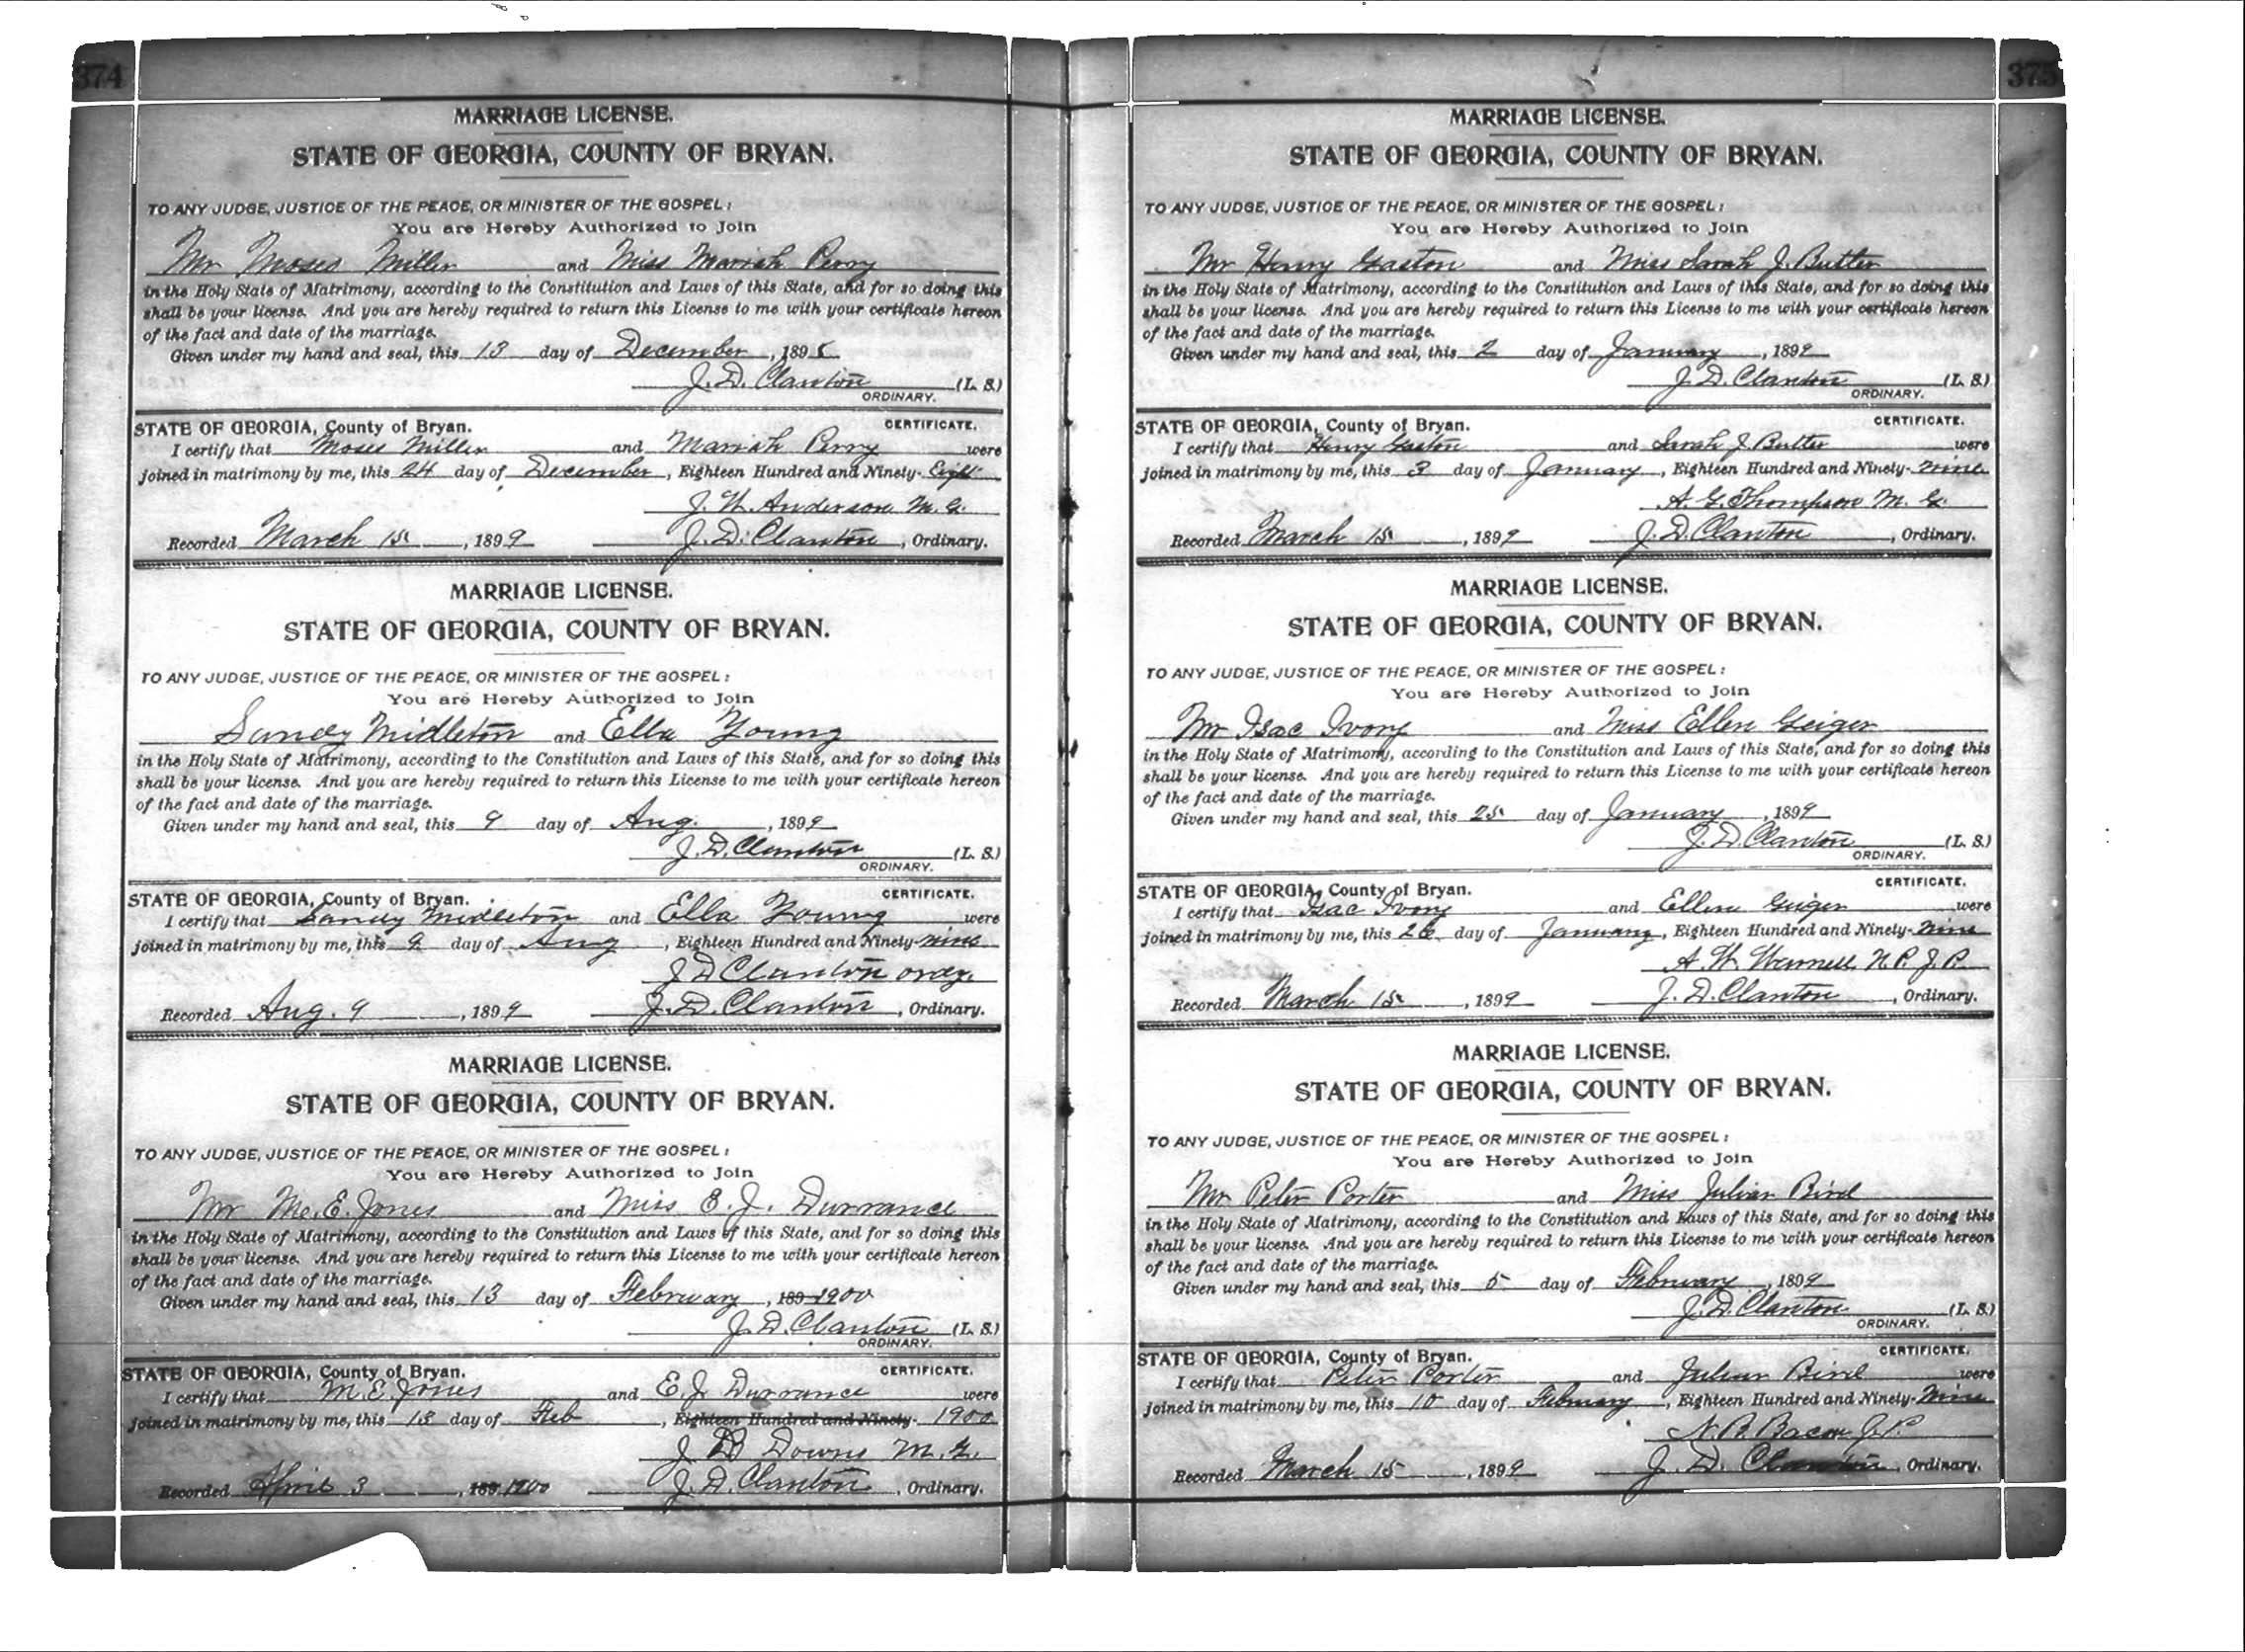 374
MARRIAGE LICENSE.
STATE OF GEORGIA, COUNTY OF BRYAN.
TO ANY JUDGE, JUSTICE OF THE PEACE, OR MINISTER OF THE GOSPEL:
You are Hereby Authorized to Join
Mr Moses Miller and Miss Mariah Perry
in the Holy State of Matrimony, according to the Constitution and Laws of this State, and for so doing this
shall be your license. And you are hereby required to return this License to me with your certificate hereon
of the fact and date of the marriage.
Given under my hand and seal, this 13 day of December, 1898
J. D. Clanton (L. S.)
ORDINARY.
STATE OF GEORGIA, County of Bryan. CERTIFICATE.
I certify that Moses Miller and Mariah Perry were
joined in matrimony by me, this 24 day of December, Eighteen Hundred and Ninety-Eight
J. W. Anderson M. G.
Recorded March 15, 1899 J. D. Clanton, Ordinary.
MARRIAGE LICENSE.
STATE OF GEORGIA, COUNTY OF BRYAN.
TO ANY JUDGE, JUSTICE OF THE PEACE, OR MINISTER OF THE GOSPEL:
You are Hereby Authorized to Join
Sandy Midleton and Ella Young
in the Holy State of Matrimony, according to the Constitution and Laws of this State, and for so doing this
shall be your license. And you are hereby required to return this License to me with your certificate hereon
of the fact and date of the marriage.
Given under my hand and seal, this 9 day of Aug., 1899
J. D. Clanton (L. S.)
ORDINARY.
STATE OF GEORGIA, County of Bryan. CERTIFICATE.
I certify that Sandy Midleton and Ella Young were
joined in matrimony by me, this 9 day of Aug, Eighteen Hundred and Ninety-nine
J D Clanton ordy.
Recorded Aug. 9, 1899 J. D. Clanton, Ordinary.
MARRIAGE LICENSE.
STATE OF GEORGIA, COUNTY OF BRYAN.
TO ANY JUDGE, JUSTICE OF THE PEACE, OR MINISTER OF THE GOSPEL:
You are Hereby Authorized to Join
Mr M. E. Jones and Miss E. J. Durrance
in the Holy State of Matrimony, according to the Constitution and Laws of this State, and for so doing this
shall be your license. And you are hereby required to return this License to me with your certificate hereon
of the fact and date of the marriage.
Given under my hand and seal, this 13 day of February, 189 1900
J. D. Clanton (L. S.)
ORDINARY.
STATE OF GEORGIA, County of Bryan. CERTIFICATE.
I certify that M. E. Jones and E. J Durrance were
joined in matrimony by me, this 13 day of Feb, Eighteen Hundred and Ninety- 1900
J D Downs M. G.
Recorded April 3, 189 1900 J. D. Clanton, Ordinary.
375
MARRIAGE LICENSE.
STATE OF GEORGIA, COUNTY OF BRYAN.
TO ANY JUDGE, JUSTICE OF THE PEACE, OR MINISTER OF THE GOSPEL:
You are Hereby Authorized to Join
Mr Henry Gaston and Miss Sarah J. Butler
in the Holy State of Matrimony, according to the Constitution and Laws of this State, and for so doing this
shall be your license. And you are hereby required to return this License to me with your certificate hereon
of the fact and date of the marriage.
Given under my hand and seal, this 2 day of January, 1899
J. D. Clanton (L. S.)
ORDINARY.
STATE OF GEORGIA, County of Bryan. CERTIFICATE.
I certify that Henry Gaston and Sarah J Butler were
joined in matrimony by me, this 3 day of January, Eighteen Hundred and Ninety-nine
A. G. Thompson M. G.
Recorded March 15, 1899 J. D. Clanton, Ordinary.
MARRIAGE LICENSE.
STATE OF GEORGIA, COUNTY OF BRYAN.
TO ANY JUDGE, JUSTICE OF THE PEACE, OR MINISTER OF THE GOSPEL:
You are Hereby Authorized to Join
Mr Isac Ivory and Miss Ellen Geiger
in the Holy State of Matrimony, according to the Constitution and Laws of this State, and for so doing this
shall be your license. And you are hereby required to return this License to me with your certificate hereon
of the fact and date of the marriage.
Given under my hand and seal, this 25 day of January, 1899
J. D. Clanton (L. S.)
ORDINARY.
STATE OF GEORGIA, County of Bryan. CERTIFICATE.
I certify that Isac Ivory and Ellen Geiger were
joined in matrimony by me, this 26 day of January, Eighteen Hundred and Ninety-Nine
A. W. N. P. J. P.
Recorded March 15, 1899 J. D. Clanton, Ordinary.
MARRIAGE LICENSE.
STATE OF GEORGIA, COUNTY OF BRYAN.
TO ANY JUDGE, JUSTICE OF THE PEACE, OR MINISTER OF THE GOSPEL:
You are Hereby Authorized to Join
Mr Peter Porter and Miss Julian Bird
in the Holy State of Matrimony, according to the Constitution and Laws of this State, and for so doing this
shall be your license. And you are hereby required to return this License to me with your certificate hereon
of the fact and date of the marriage.
Given under my hand and seal, this 5 day of February, 1899
J. D. Clanton (L. S.)
ORDINARY.
STATE OF GEORGIA, County of Bryan. CERTIFICATE.
I certify that Peter Porter and Julian Bird were
joined in matrimony by me, this 10 day of February, Eighteen Hundred and Ninety-Nine
N. B. Bacon J. P.
Recorded March 15, 1899 J. D. Clanton, Ordinary.